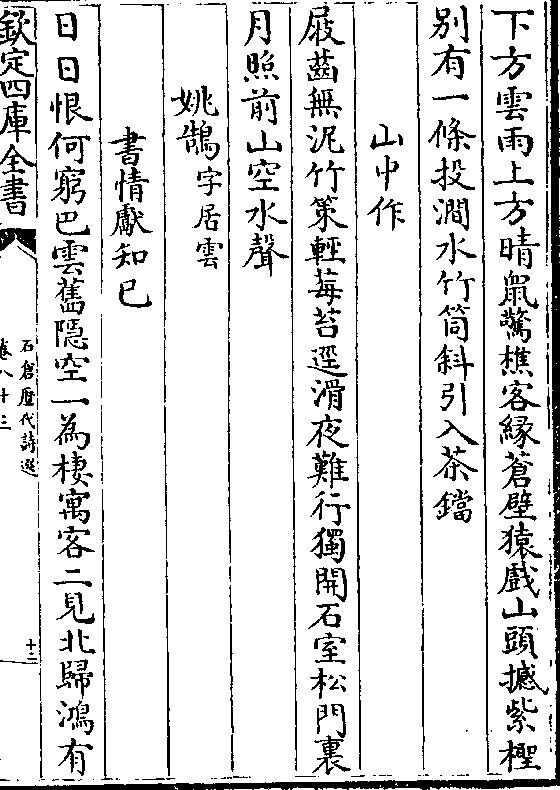 下方雲雨上方晴鼠驚樵客緣蒼壁猿戲山頭撼紫檉
別有一條投澗水竹筒斜引入茶鐺
山中作
屐齒無泥竹策輕莓苔逕滑夜難行獨開石室松門裏
月照前山空水聲
姚鵠字居雲
書情獻知已
日日恨何窮巴雲舊隱空一為棲寓客二見北歸鴻有
欽定四庫全書
石倉歷代詩選
卷八十三
十二